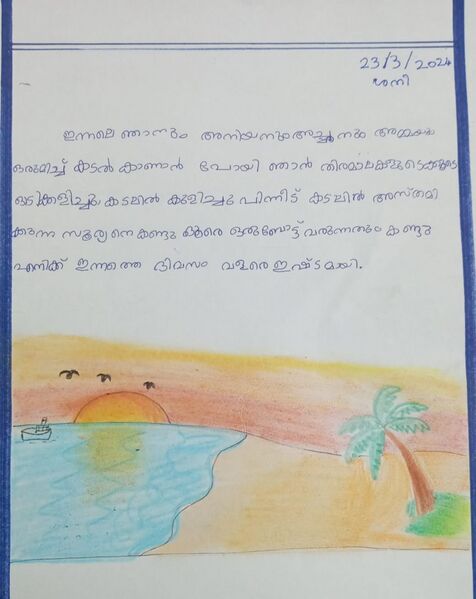 23/3/2024
ശനി
ഇന്നലെ ഞാനും അനിയനും അച്ഛനും അമ്മയും
ഒരുമിച്ച് കടൽ കാണാൻ പോയി ഞാൻ തിരമാലകളുടെകൂടെ
ഓടിക്കളിച്ചു കടലിൽ കുളിച്ചു പിന്നീട് കടലിൽ അസ്തമി
ക്കുന്ന സൂര്യനെ കണ്ടു ദൂരെ ഒരുബോട്ട് വരുന്നതും കണ്ടു
എനിക്ക് ഇന്നത്തെ ദിവസം വളരെ ഇഷ്ടമായി.